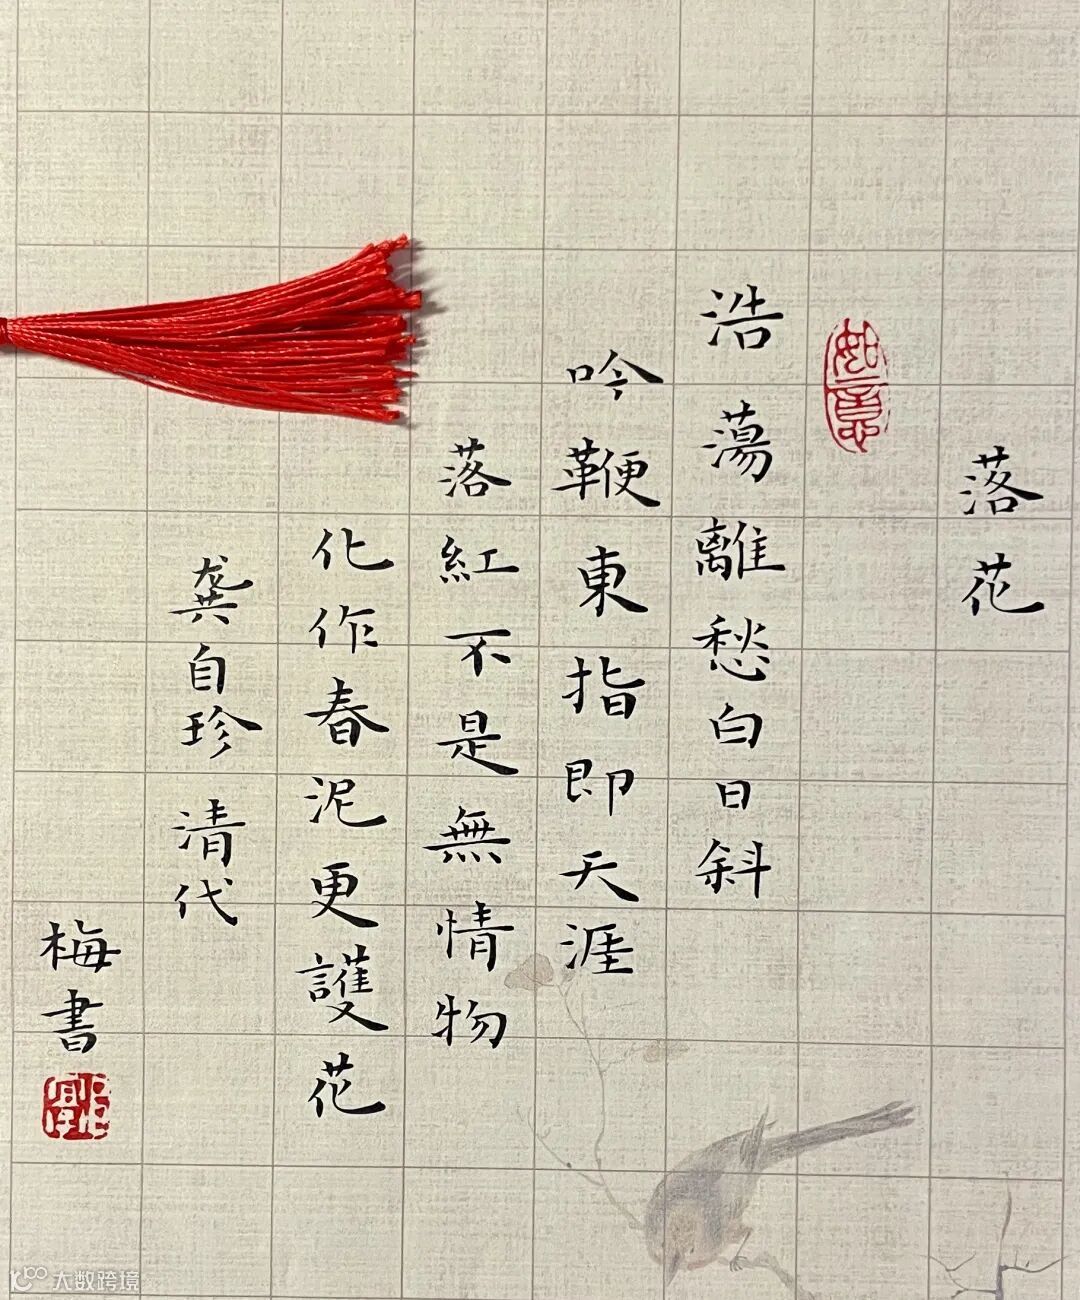 落花
如意
浩蕩離愁白日斜
吟鞭東指即天涯
落紅不是無情物
化作春泥更護花
龔自珍 清代
梅書
大数跨境